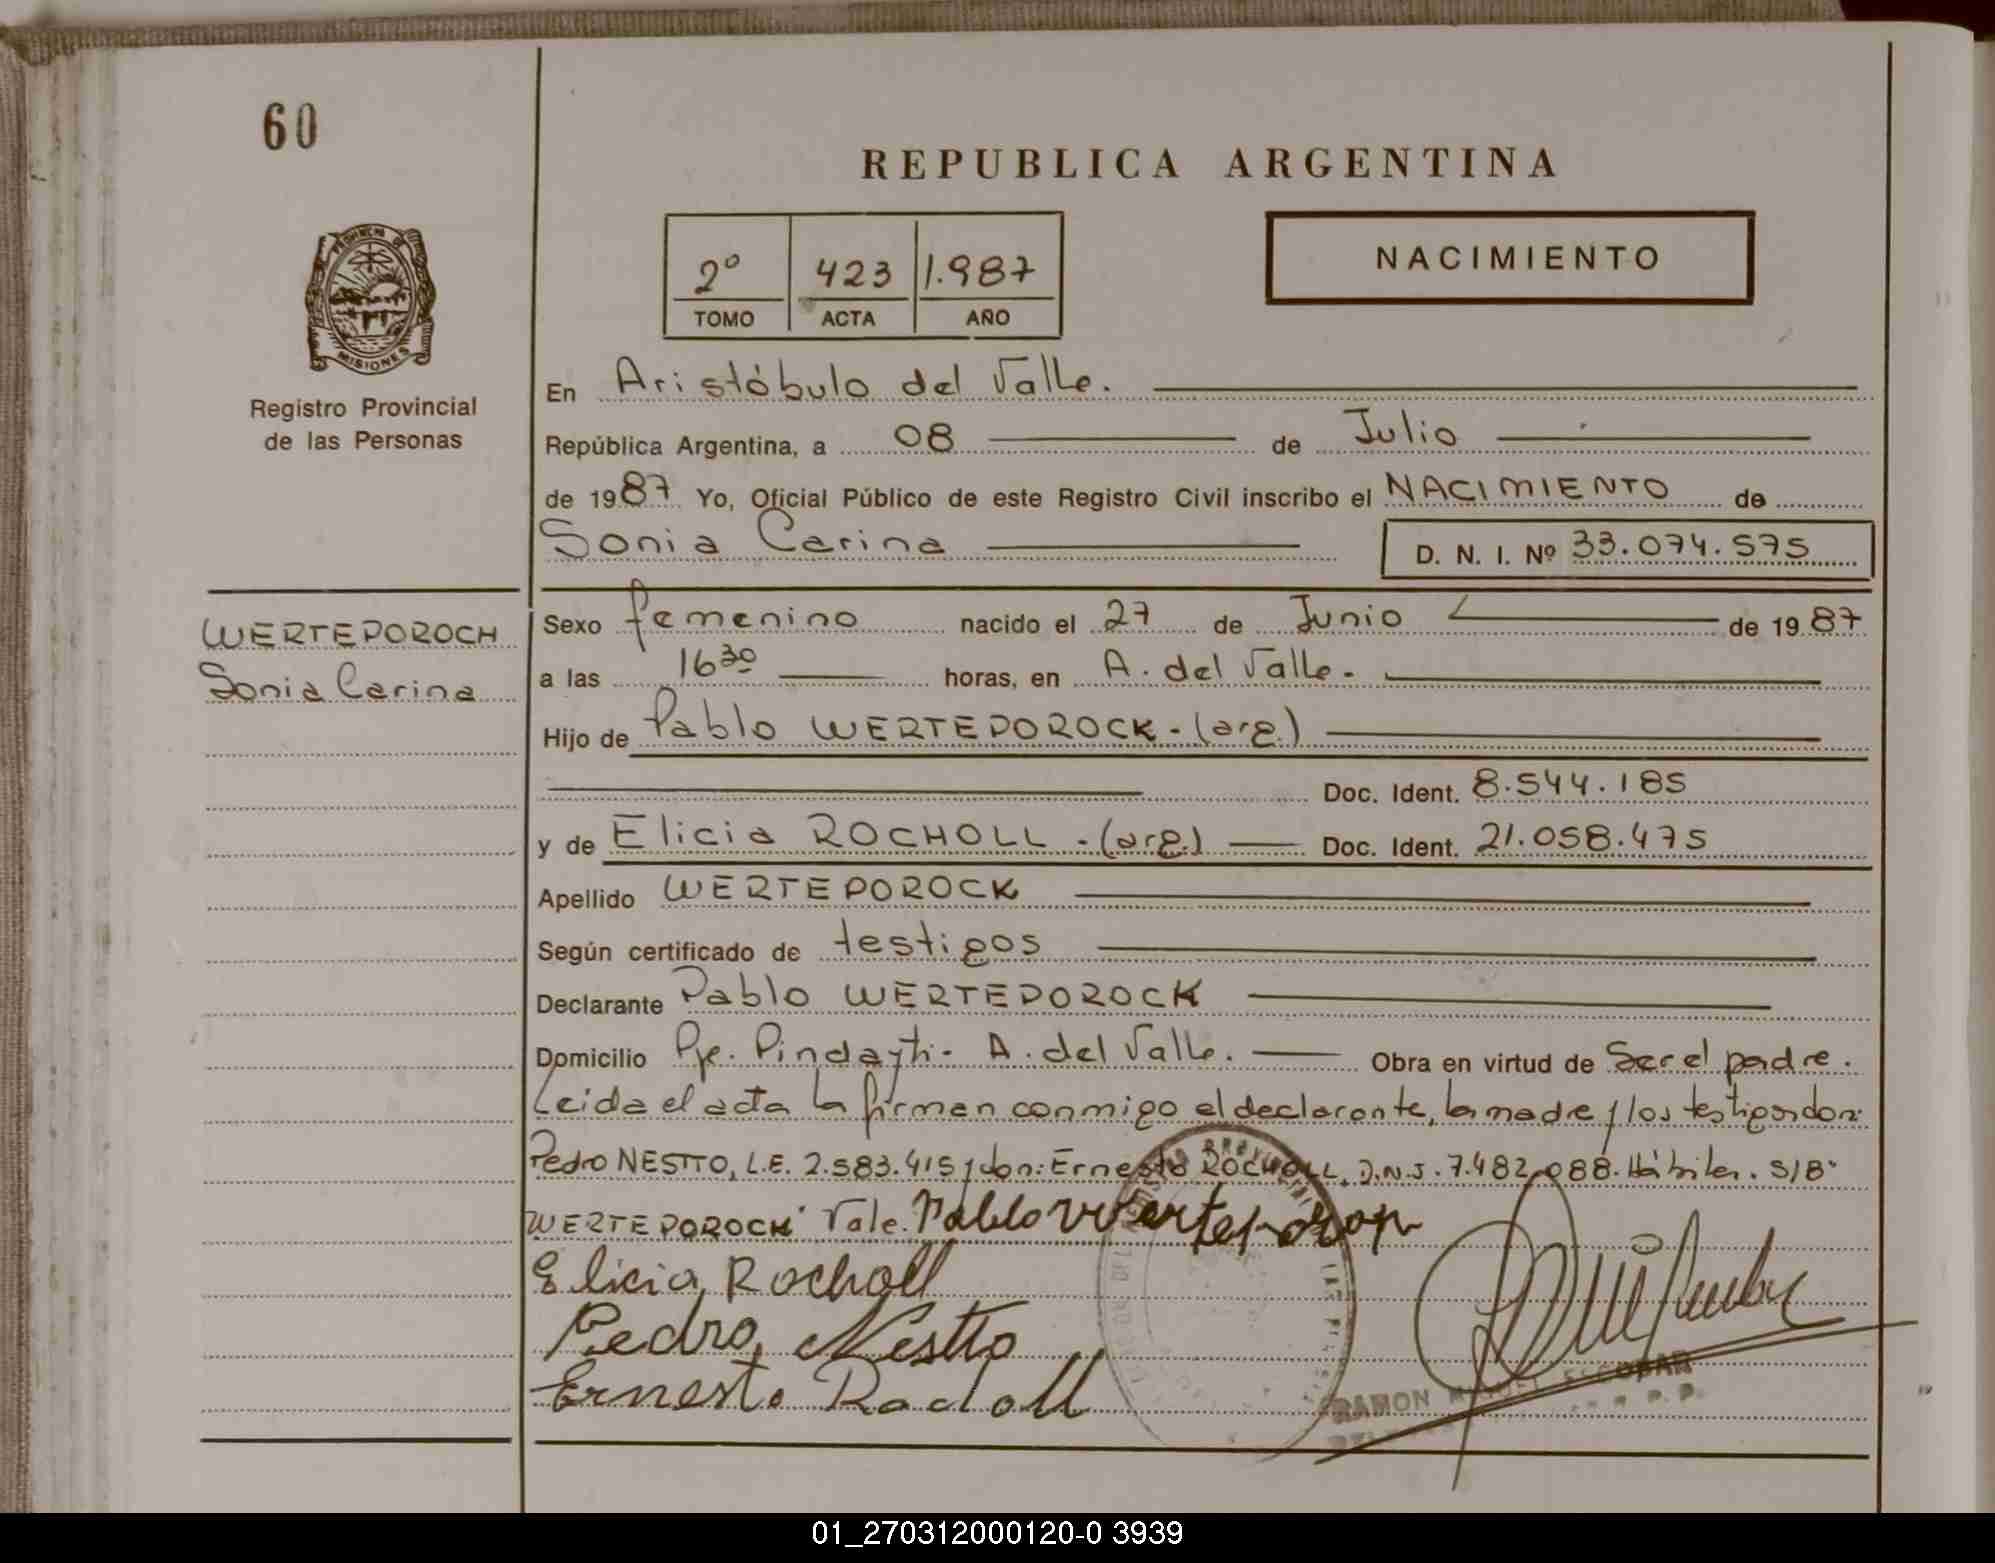 60
REPUBLICA ARGENTINA
2º 423 1.987
TOMO ACTA AÑO
NACIMIENTO
PROVINCIA DE
MISIONES
Registro Provincial
de las Personas
En Aristóbulo del Valle.
República Argentina, a 08 de Julio
de 1987 Yo, Oficial Público de este Registro Civil inscribo el NACIMIENTO de
Sonia Carina
D. N. I. Nº 33.074.575
WERTEPOROCH
Sonia Carina
Sexo femenino nacido el 27 de Junio de 1987
a las 16 30 horas, en A. del Valle.
Hijo de Pablo WERTEPOROCK - (arg.)
Doc. Ident. 8.544.185
y de Elicia ROCHOLL - (arg.) Doc. Ident. 21.058.475
Apellido WERTEPOROCK
Según certificado de testigos
Declarante Pablo WERTEPOROCK
Domicilio Pje. Pindayti - A. del Valle. Obra en virtud de Ser el padre.
Leida el acta la firman conmigo el declarante, la madre y los testigos don:
Pedro NESTTO, L.E. 2.583.415 y don: Ernesto ROCHOLL, D.N.J. 7.482.088. Hábiles. S/B"
WERTEPOROCH" Vale. Pablo
Elicia Rocholl
Pedro Nestto
Ernesto Rocholl
RAMON MIGUEL ESCOBAR
01_270312000120-0 3939